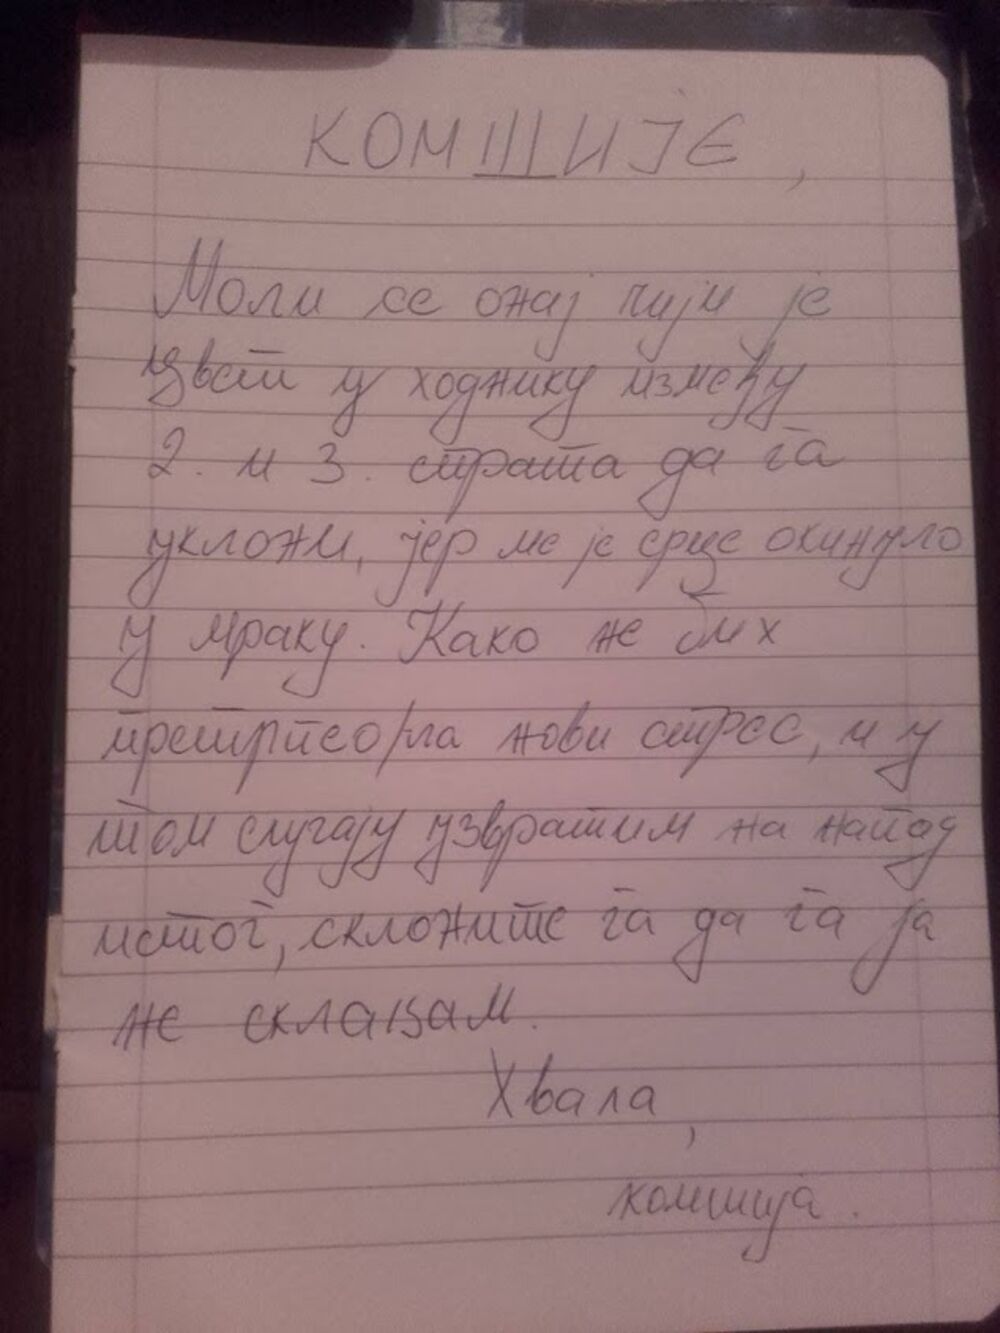 КОМШИЈЕ,
Моли се онај чији је
цвет у ходнику између
2. и 3. спрата да га
уклони, јер ме је срце окинуло
у мраку. Како не бих
претрпео/ла нови стрес, и у
том случају узвратим на напад
истог, склоните га да га ја
не склањам.
Хвала,
комшија.